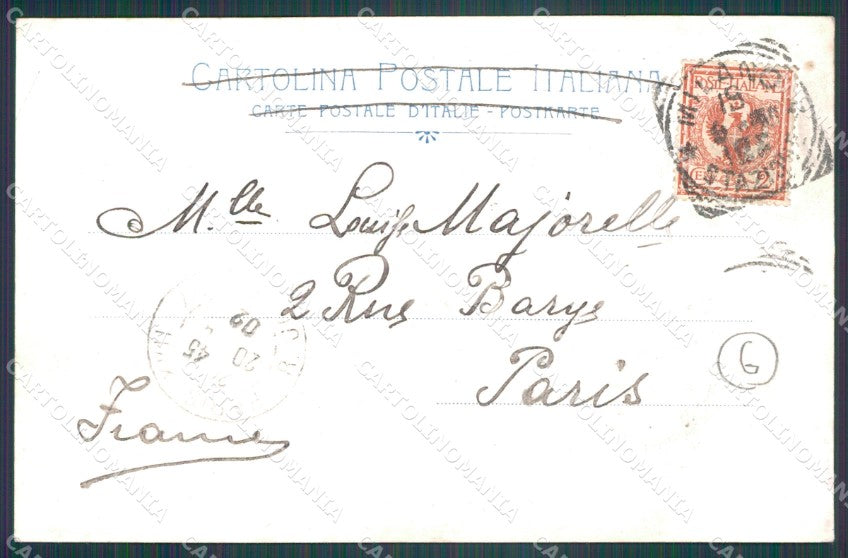 CARTOLINA POSTALE ITALIANA
CARTE POSTALE D'ITALIE - POSTKARTE
POSTE ITALIANE
MILANO
STAZIONE
M.lle Louise Majorelle
2 Rue Barye
Paris
France
20 45
02
6
CARTOLINOMANIA